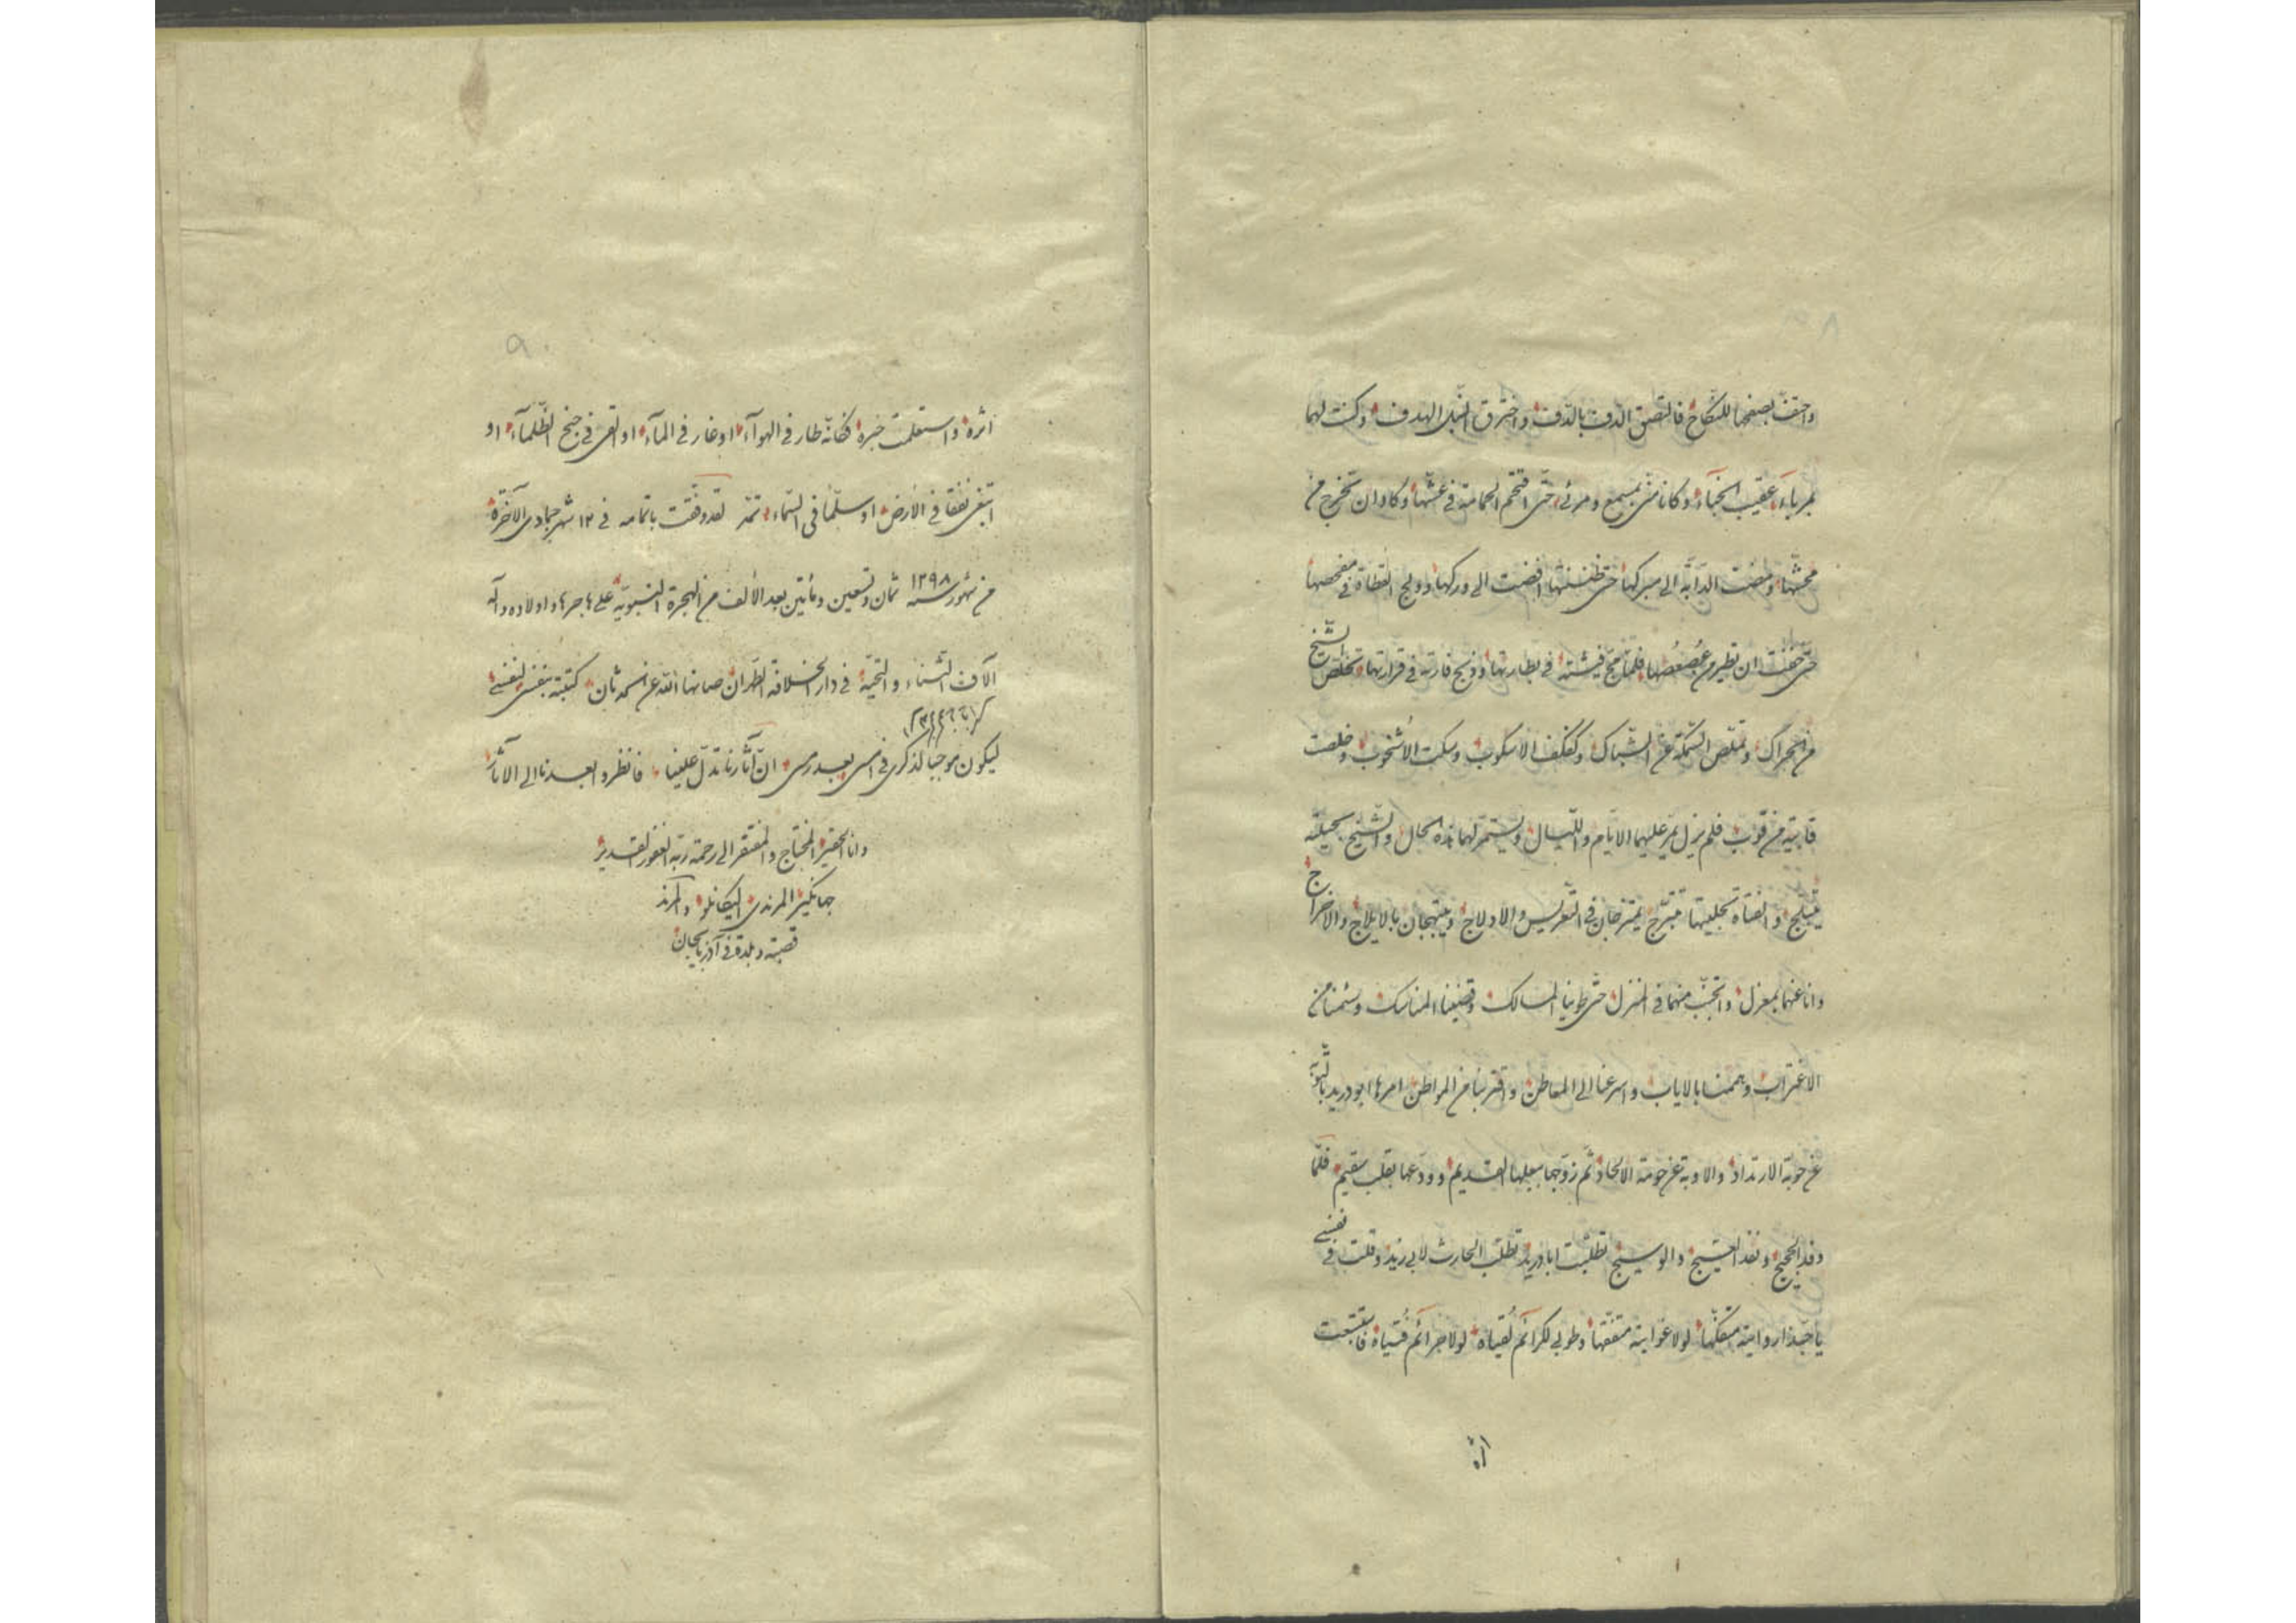 واحتف بصفحها للنكاح فالتصق الدف بالدف واخترق النبل الهدف وكنت لهما
بمرباء عقيب الخباء وكانا منى بمسمع ومرئى حتى اقتحم الحمامة فى عشها وكاد ان تخرج من
محشها ومضت الدابة الى مبركها حتى ظننتها افضت الى وركها وولج القطاة فى مفحصها
حتى خفت ان تطير من فلما مج فيشته فى بظارتها وذبح فارته فى قرارتها تخلص الشيخ
من الحراك وتملص السمكة عن الشباك وكفكف الاسكوب وسكت الاشخوب وخلصت
قابية من قوب فلم يزل يمر عليهما الايام والليال ويستمر لهما هذه الحال والشيخ بحيلته
يتبلج والفتاة تجليتها تتبرج يمتزجان فى التعريس والادلاج ويبتهجان بالايلاج والاخراج
وانا عنهما بمعزل واتجنب منهما فى المنزل حتى طوينا المسالك وقضينا المناسك وسئمنا من
الاغتراب وهممنا بالاياب واسرعنا الى المعاطن واقتربنا من المواطن امرها ابو دريد بالتوبة
عن حوبة الارتداد والاوبة عن حومة الالحاد ثم زوجها ببعلها القديم وودعها بقلب سقيم فلما
وفد الحجيج ونفد العجيج والوسيج تطلبت ابا دريد تطلب الحارث لابى زيد وقلت فى نفسى
يا حبذا رواية متفكها لولا غواية متفقها وطوبى لكرائم لقياه لولا جرائم فتياه فاستتبعت
اثره
اثره واستعلمت خبره فكانه طار فى الهواء او غار فى الماء او التقى فى جنح الظلماء او
ابتغى نفقا فى الارض او سلما فى السماء تمت لقد وفقت باتمامه فى ١٢ شهر جمادى الآخرة
من شهور سنه ١٢٩٨ ثمان وتسعين ومأتين بعد الألف من الهجرة النبوية على هاجرها واولاده وآله
آلاف الثناء والتحية فى دار الخلافة الطهران صانها الله عن كتبته بنفسى لنفسى
ليكون موجبا لذكرى فى امس بعد رمسى ان آثارنا تدل علينا فانظروا بعدنا الى الآثار
وانا الحقير المحتاج والمفتقر الى رحمة ربه الغفور القدير
جهانگير المرندى اليكانلو والمرند
قصبة وبلدة فى آذربايجان